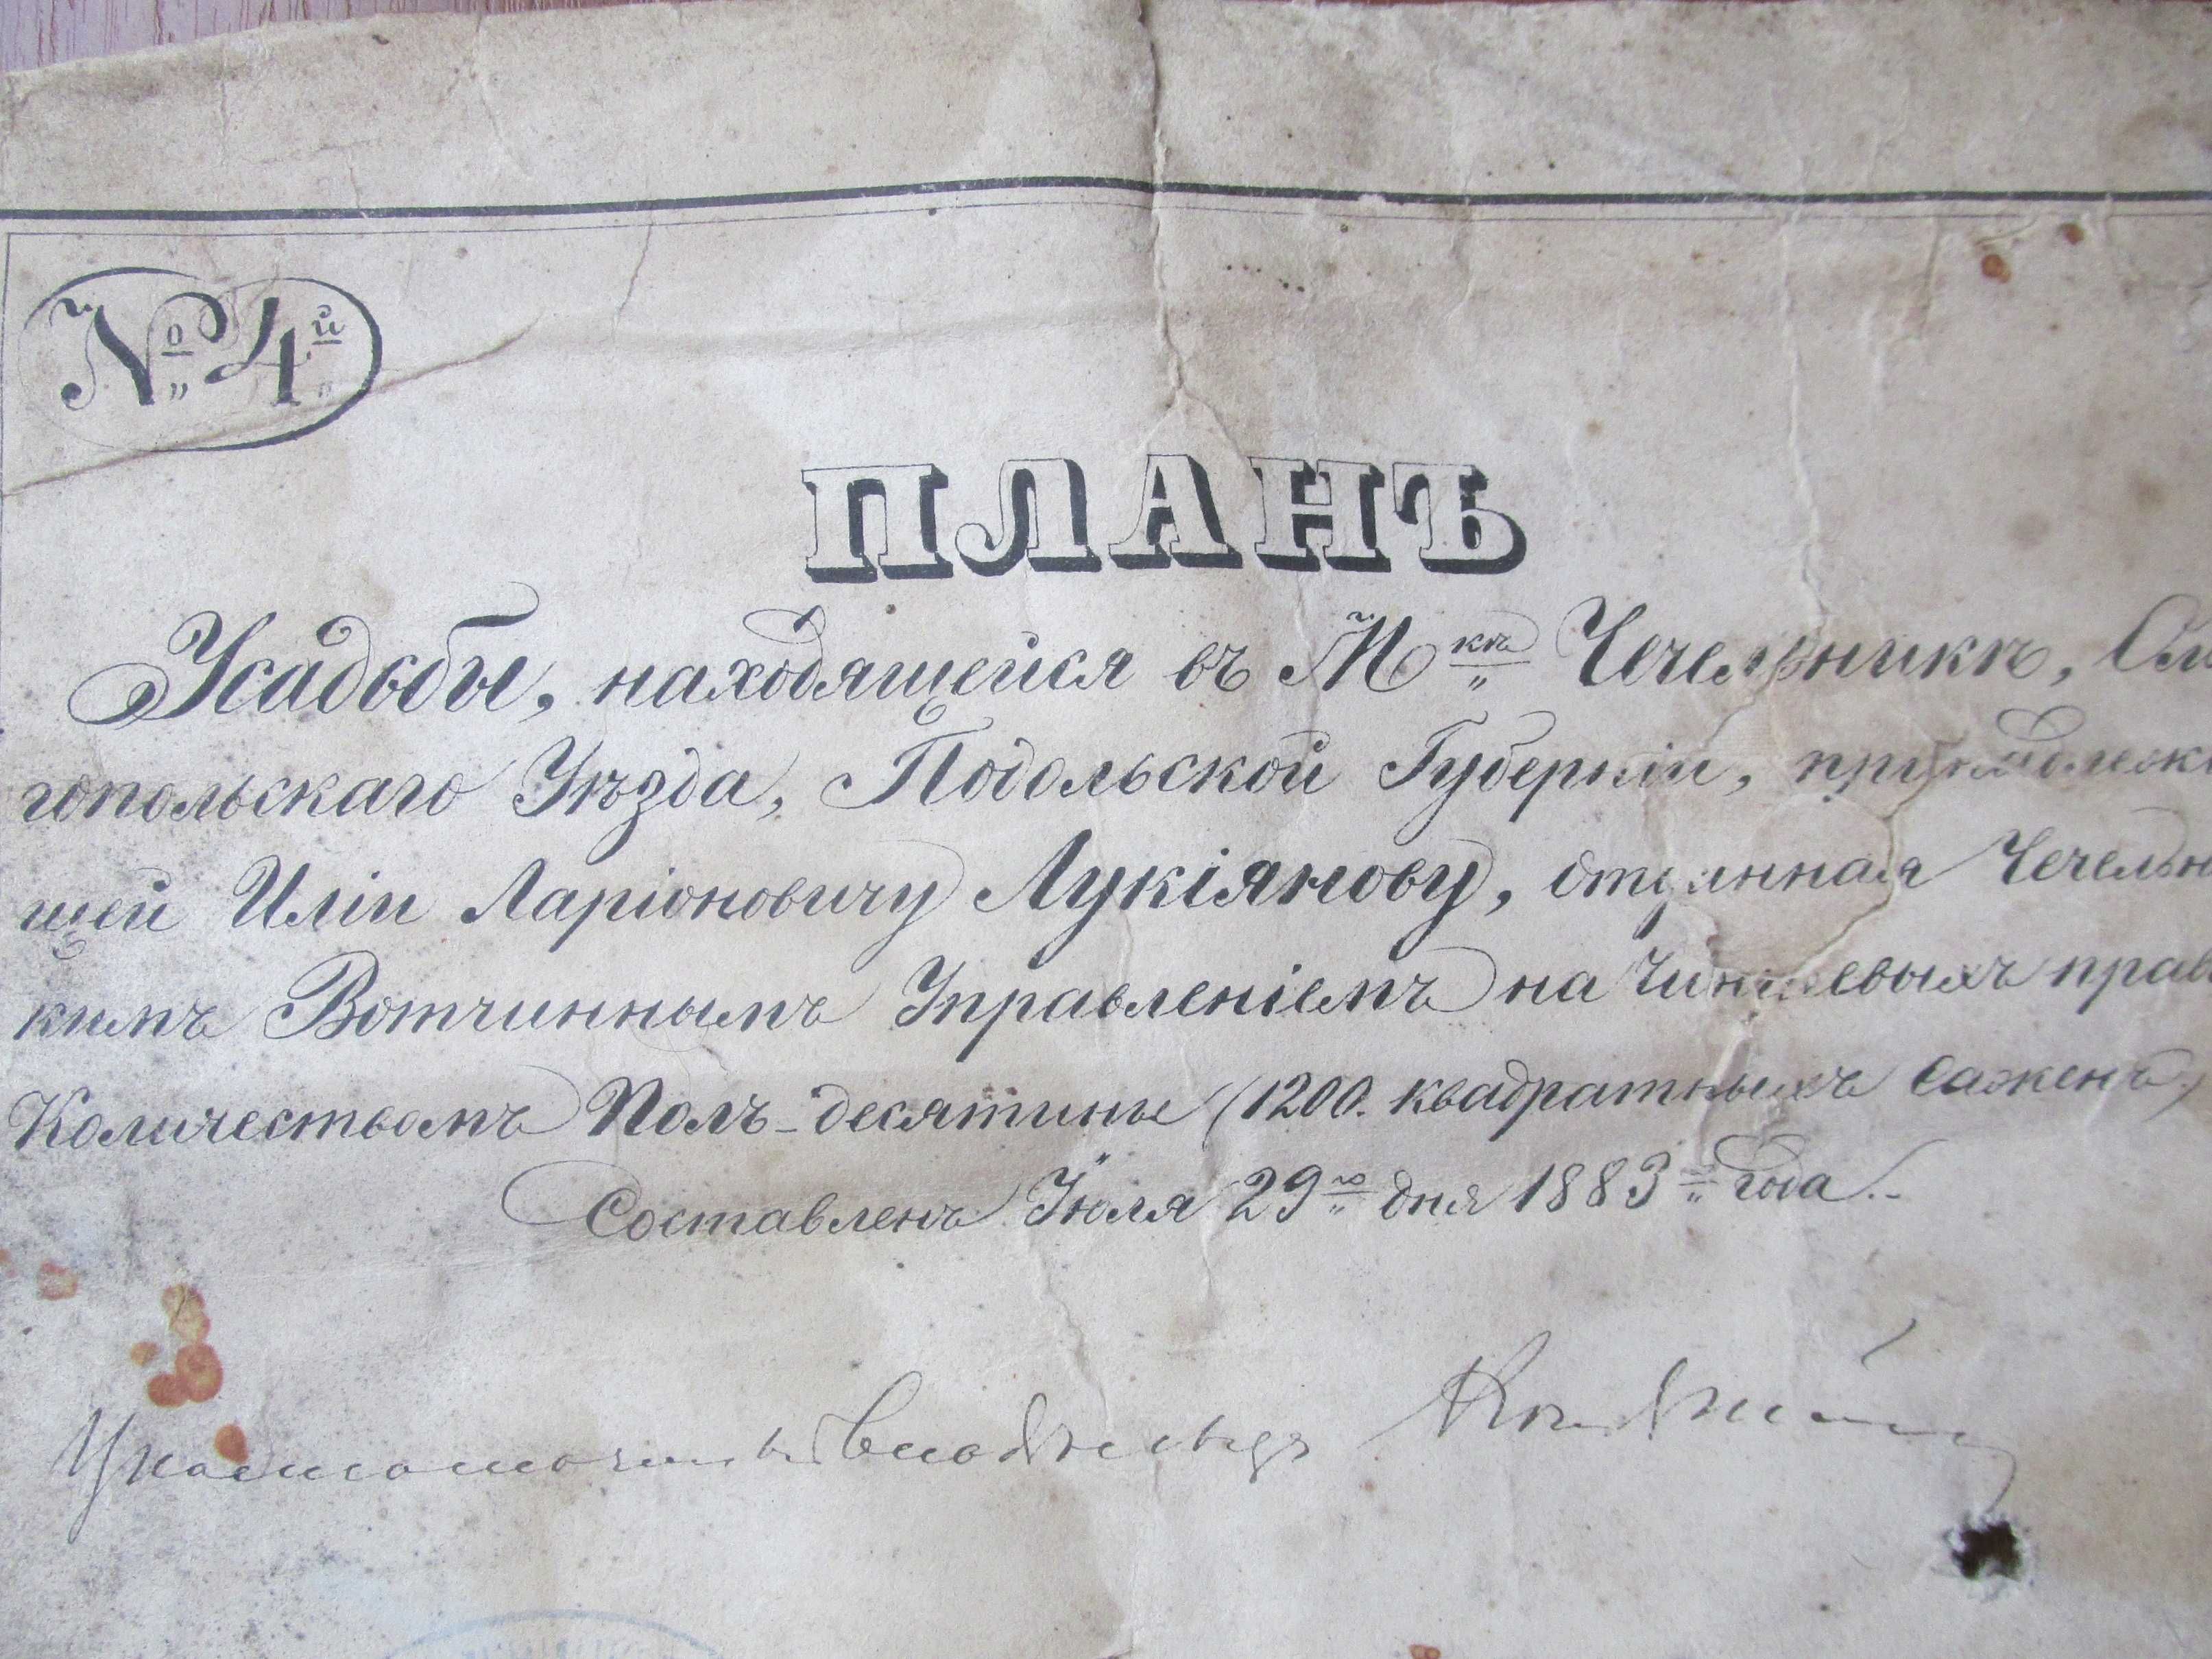 № 4й
ПЛАНЪ
Усадьбы, находящейся въ Мкѣ Чечельникѣ, Оль
гопольскаго Уѣзда, Подольской Губерніи, принадлежа
щей Иліи Ларіоновичу Лукіянову, отданная Чечельниц
кимъ Вотчиннымъ Управленіемъ на Чиншевыхъ правахъ
Количествомъ Полъ-десятины (1200. квадратныхъ Сажень)
Составленъ Іюля 29го дня 1883го года.
Уполномоченный Владѣльца